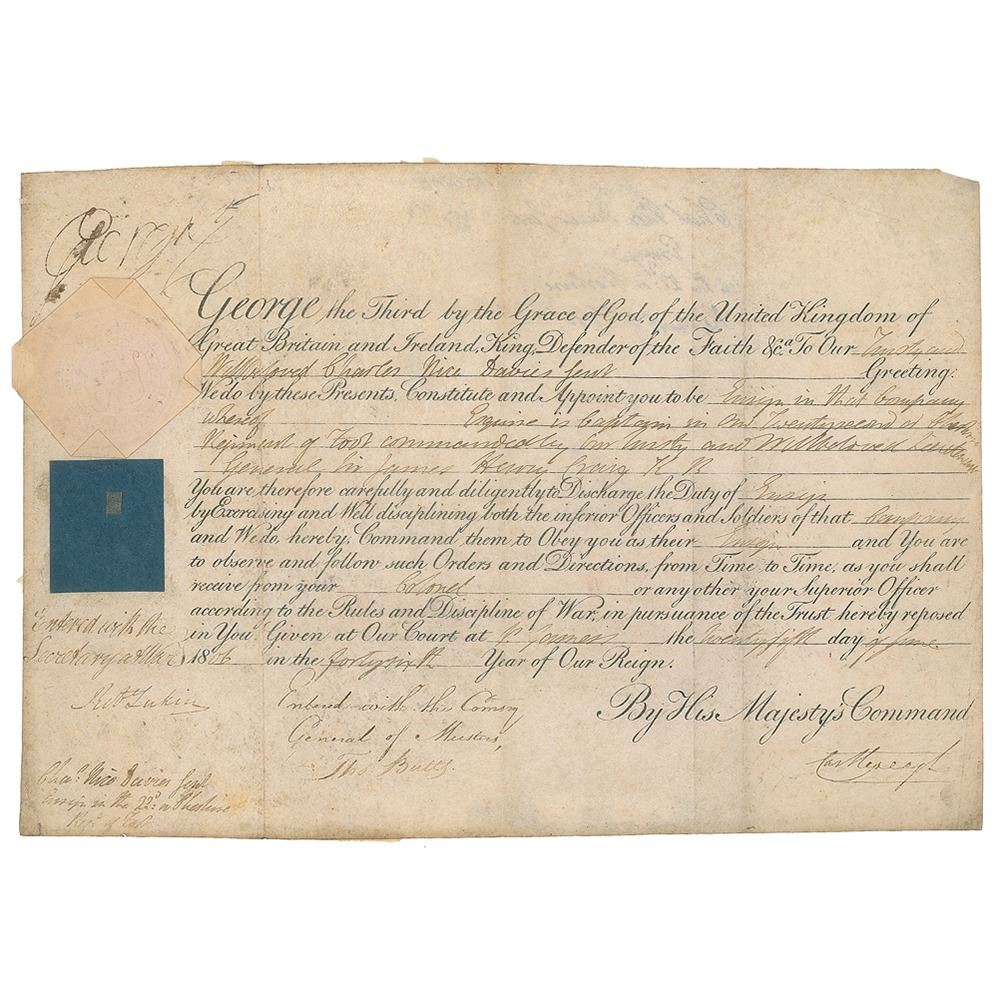 George R
George the Third by the Grace of God, of the United Kingdom of
Great Britain and Ireland, King, Defender of the Faith &c.a To Our Trusty and
Wellbeloved Charles Nice Davies Gent Greeting:
We do by these Presents, Constitute and Appoint you to be Ensign in that Company
whereof Esquire is Captain in Our Twentysecond or Cheshire
Regiment of Foot commanded by Our Trusty and Wellbeloved Lieutenant
General Sir James Henry Craig K B
You are therefore carefully and diligently to Discharge the Duty of Ensign
by Exercising and Well disciplining both the inferior Officers and Soldiers of that Company
and We do hereby Command them to Obey you as their Ensign and You are
to observe and follow such Orders and Directions, from Time to Time, as you shall
receive from your Colonel or any other your Superior Officer
according to the Rules and Discipline of War, in pursuance of the Trust hereby reposed
in You. Given at Our Court at St. James's the Twentyfifth day of June
1806 in the fortysixth Year of Our Reign.
By His Majesty's Command
Entered with the
Secretary at War
Entered with the Comsy
General of Musters,
Thos Butts.
Chas. Nice Davies Gent
Ensign in the 22d or Cheshire
Regt. of Foot